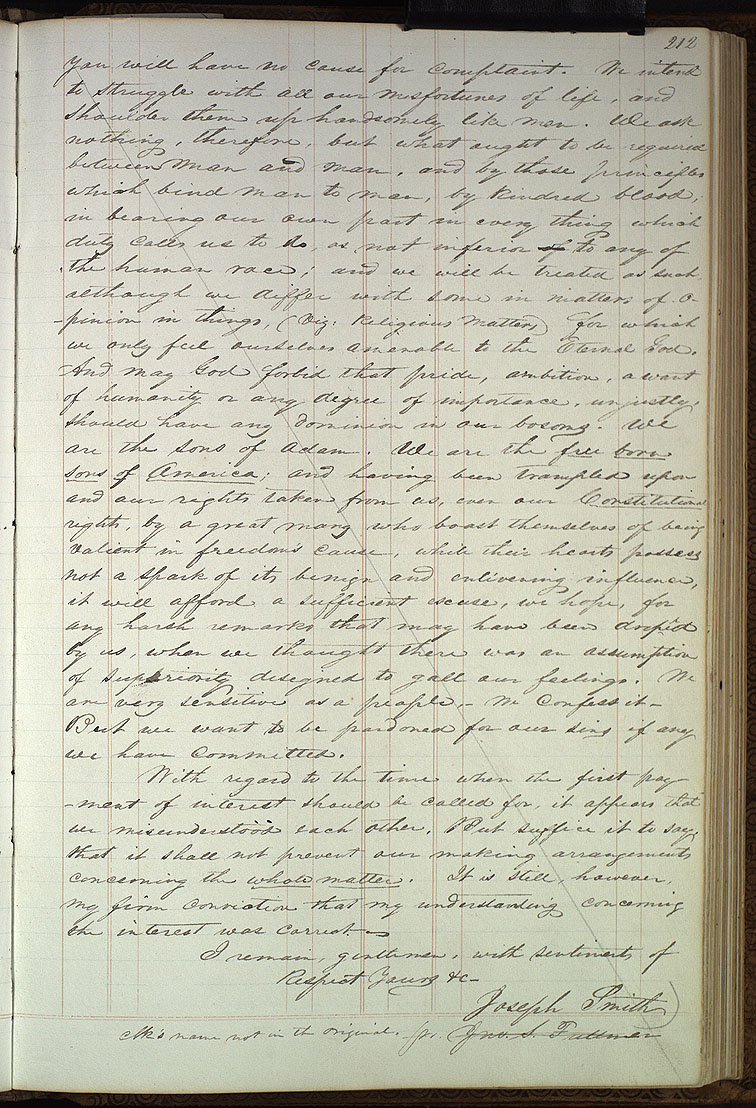 212
you will have no cause for complaint. We intend
to struggle with all our misfortunes of life, and
shoulder them up handsomely like men. We ask
nothing, therefore, but what ought to be required
between man and man, and by those principles
which bind man to man, by kindred blood,
in bearing our own part in every thing which
duty calls us to do, as not inferior of to any of
the human race; and we will be treated as such
although we differ with some in matters of o-
-pinion in things, (Viz: Religious matters) for which
we only feel ourselves amenable to the Eternal God.
And may God forbid that pride, ambition, a want
of humanity or any degree of importance, unjustly,
should have any dominion in our bosoms. We
are the sons of Adam. We are the free born
sons of America; and having been trampled upon
and our rights taken from us, even our Constitutional
rights, by a great many who boast themselves of being
valient in freedom's cause, while their hearts possess
not a spark of its benign and enlivening influence,
it will afford a sufficient excuse, we hope, for
any harsh remarks that may have been drop'd
by us, when we thought there was an assumption
of superiority designed to gall our feelings. We
are very sensitive as a people,- We confess it-
But we want to be pardoned for our sins if any
we have committed.
With regard to the time when the first pay-
-ment of interest should be called for, it appears that
we misunderstood each other. But suffice it to say,
that it shall not prevent our making arrangements
concerning the whole matter. It is still, however,
my firm conviction that my understanding concerning
the interest was correct.
I remain, gentlemen, with sentiments of
Respect Yours &c-
Joseph Smith
Clk's name not in the original. pr. Jno. S. Fullmer